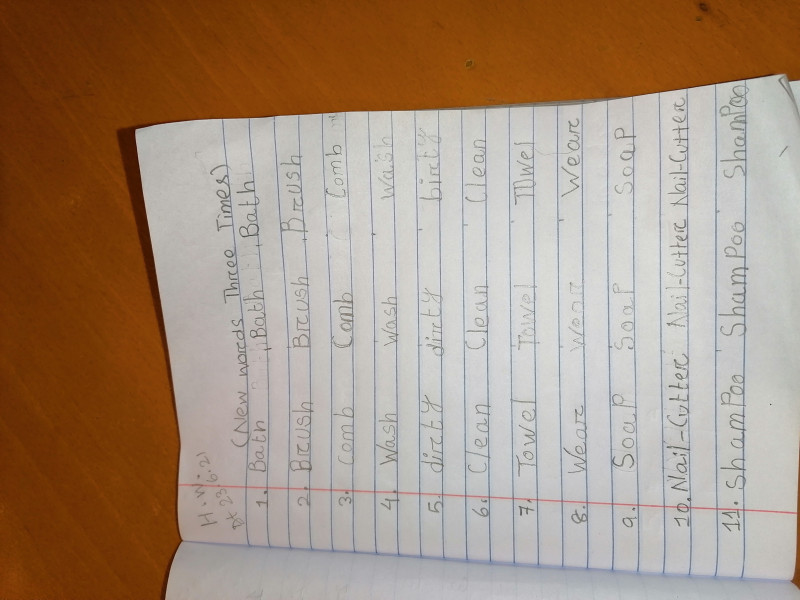 H.W.
Dt 23.6.21
(New words Three Times)
1. Bath Bath Bath
2. Brush Brush Brush
3. Comb Comb Comb
4. Wash Wash Wash
5. dirty dirty birty
6. Clean Clean Clean
7. Towel Towel Towel
8. Wear Wear Wear
9. Soap Soap Soap
10. Nail-Cutter Nail-Cutter Nail-Cutter
11. ShamPoo ShamPoo ShamPoo